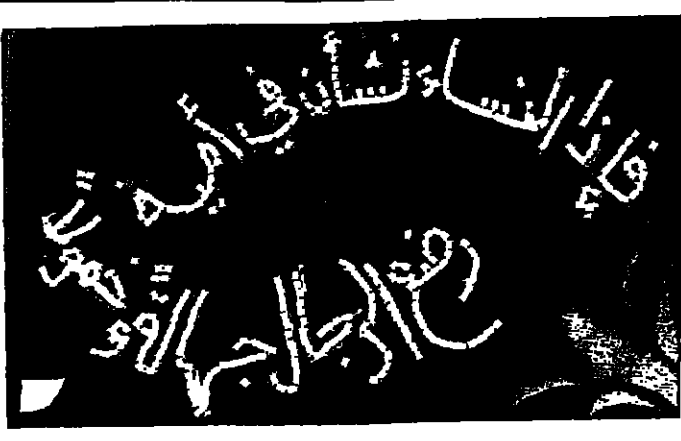 فإذا النساء نشأن في أمية
رضع الرجال جهالة وخمولاً